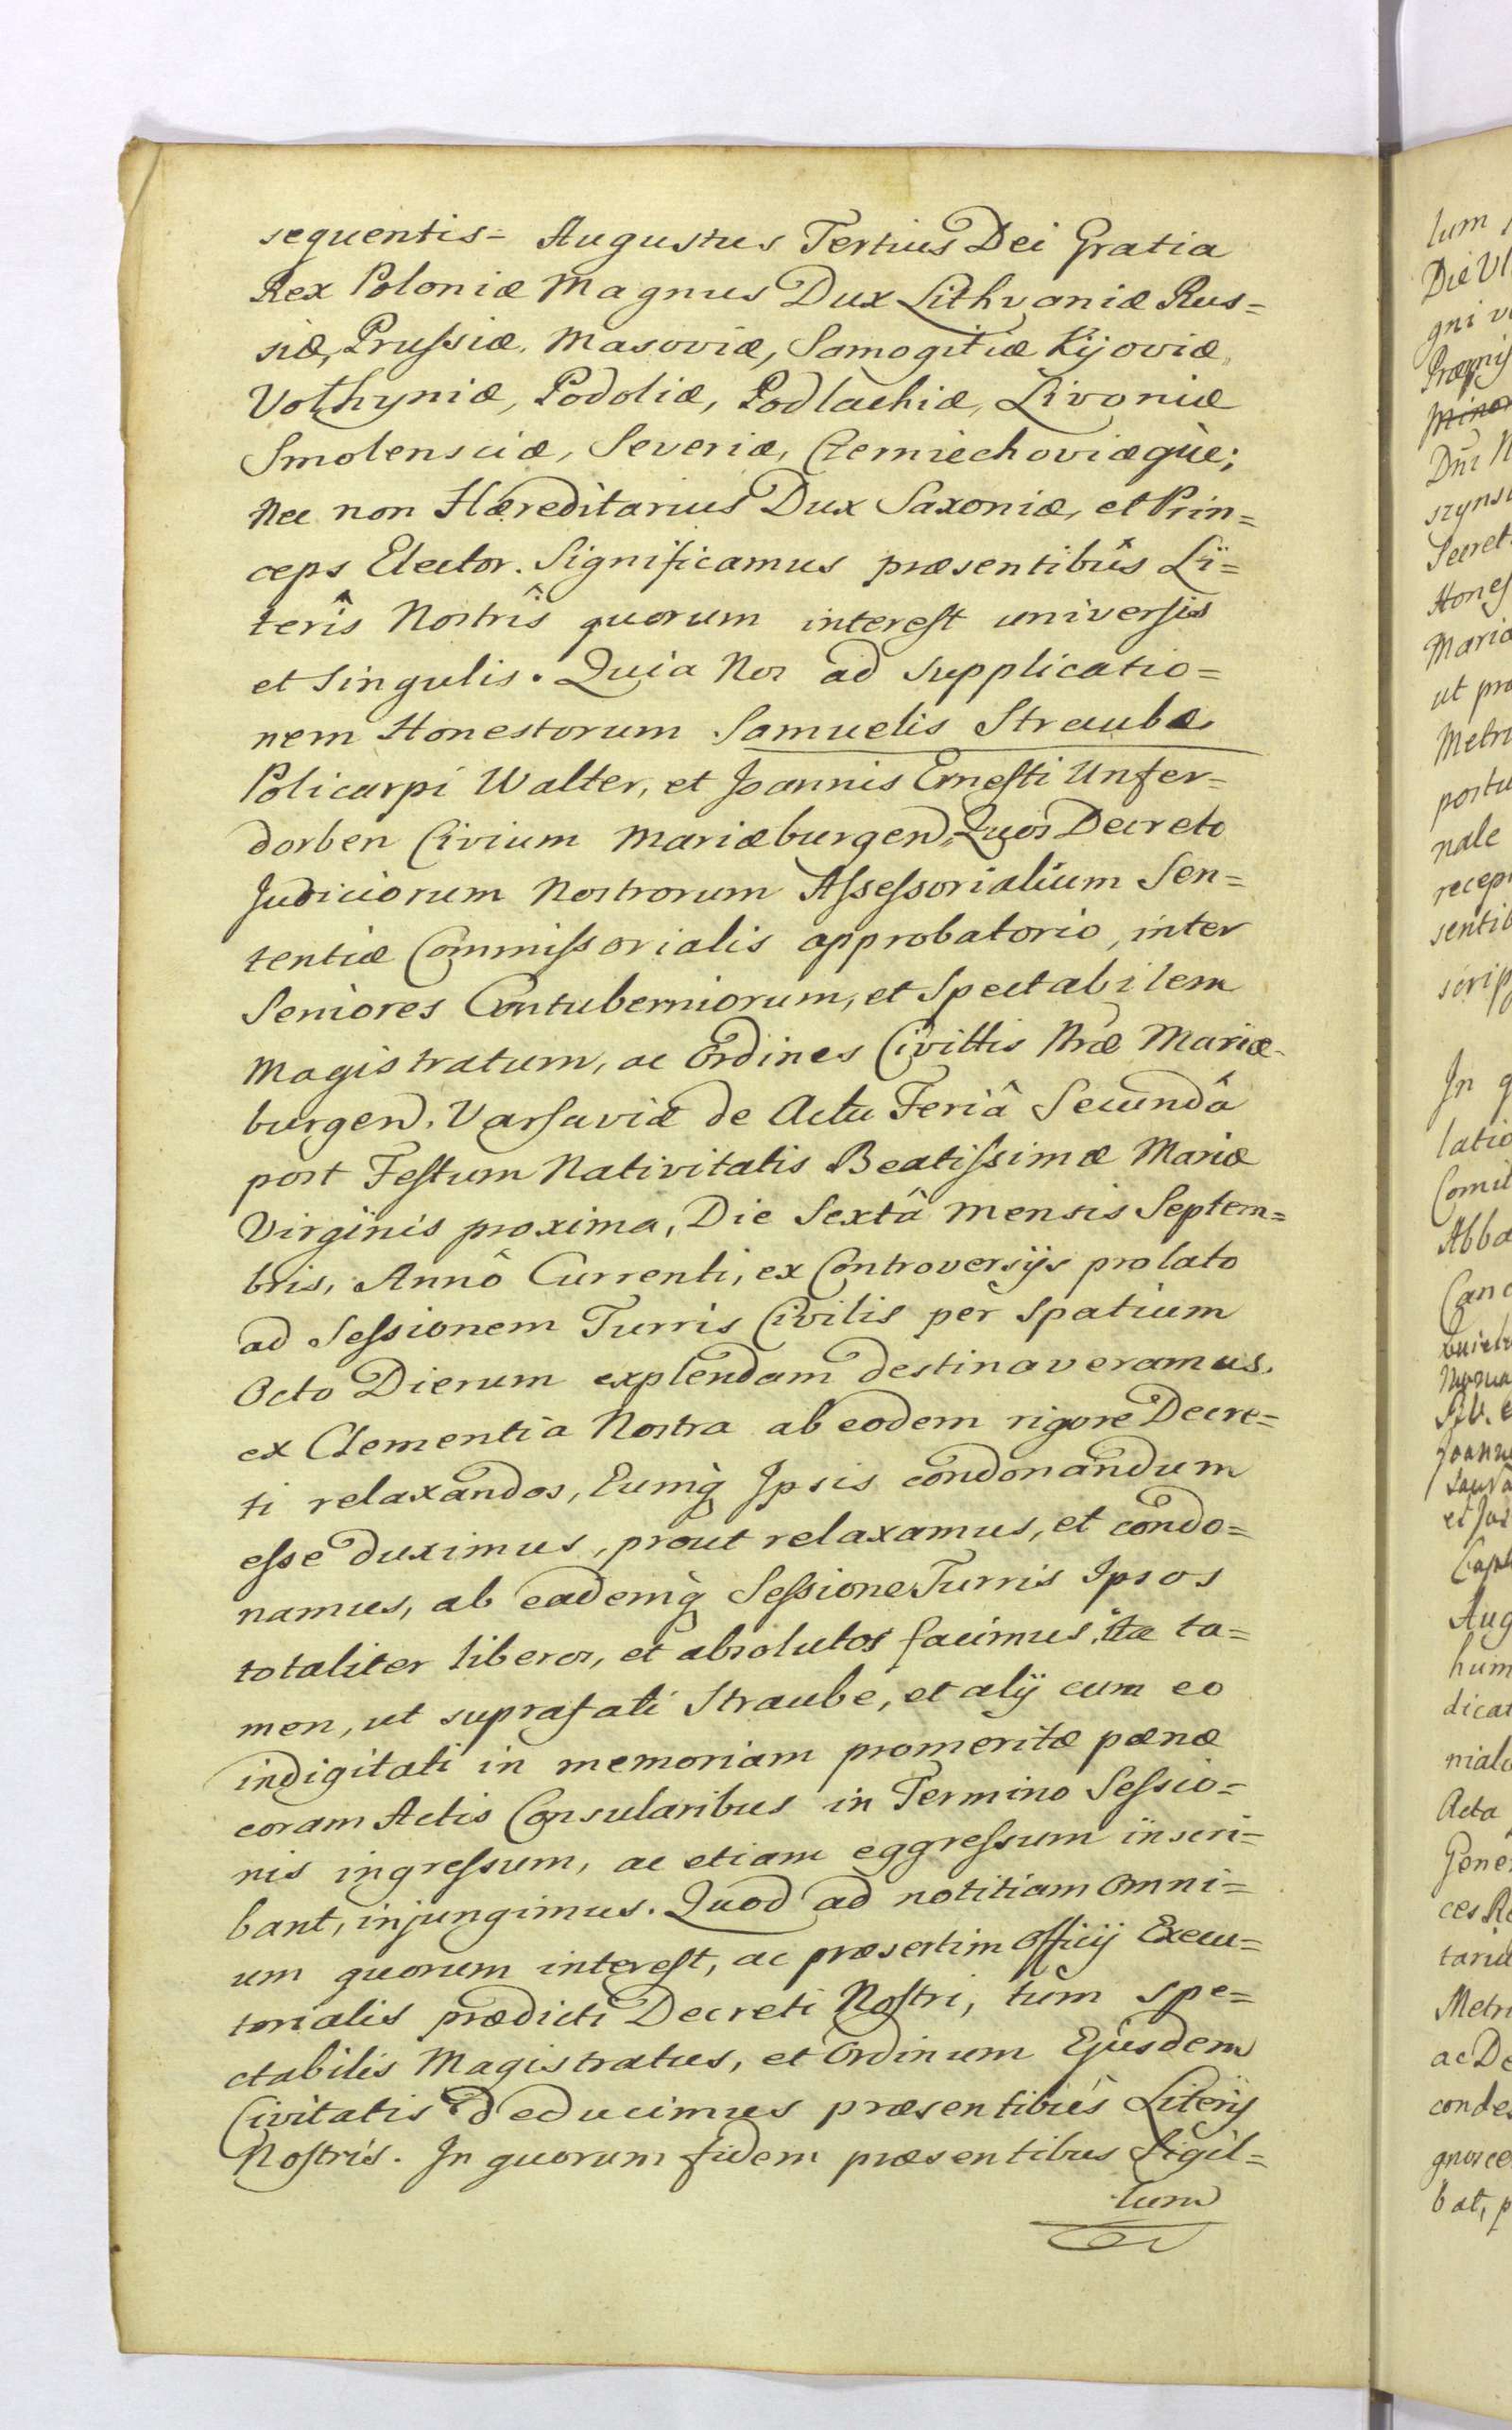 sequentis= Augustus Tertius Dei Gratia
Rex Poloniæ Magnus Dux Lithvaniæ Rus=
siæ, Prussiæ, Masoviæ, Samogitiæ Kijoviæ,
Volhyniæ, Podoliæ, Podlachiæ, Livoniæ
Smolensciæ, Severiæ, Czerniechoviæque;
Nec non Hæreditarius Dux Saxoniæ, et Prin=
ceps Elector. Significamus præsentibûs Li=
terîs Nostrîs quorum interest universis
et singulis. Quia Nos ad supplicatio=
nem Honestorum Samuelis Straube
Policarpi Walter, et Joannis Ernesti Unfer=
dorben Civium Mariæburgen, Quos Decreto
Judiciorum Nostrorum Assessorialium Sen=
tentiæ Commissorialis approbatorio, inter
Seniores Contuberniorum, et Spectabilem
Magistratum, ac Ordines Civittis Nræ Mariæ-
burgen. Varsaviæ de Actu Feriâ Secundâ
post Festum Nativitatis Beatissimæ Mariæ
Virginis proxima, Die Sextâ Mensis Septem=
bris, Annô Currenti, ex Controversijs prolato
ad Sessionem Turris Civilis per spatium
Octo Dierum explendam destinaveramus.
ex Clementia Nostra ab eodem rigore Decre=
ti relaxandos, Eumq̀ Ipsis condonandum
esse duximus, prout relaxamus, et condo=
namus, ab eademq̀ Sessione Turris Ipsos
totaliter liberos, et absolutos facimus, ita ta=
men, ut suprafati Straube, et alij cum eo
indigitati in memoriam promeritæ pænæ
coram Actis Consularibus in Termino Sessio=
nis ingressum, ac etiam eggressum inscri=
bant, injungimus. Quod ad notitiam omni=
um quorum interest, ac præsertim Officij Execu=
torialis prædicti Decreti Nostri, tùm spe=
ctabilis Magistratus, et Ordinum Ejusdem
Civitatis deducimus præsentibus Literis
Nostris. In quorum fidem præsentibus Sigil=
lum
lum
gni
Secret
Maria
ut pro
nale
In
Comit
Aug
hum
dicat
Acta
Gene
ces
Metri
ac De